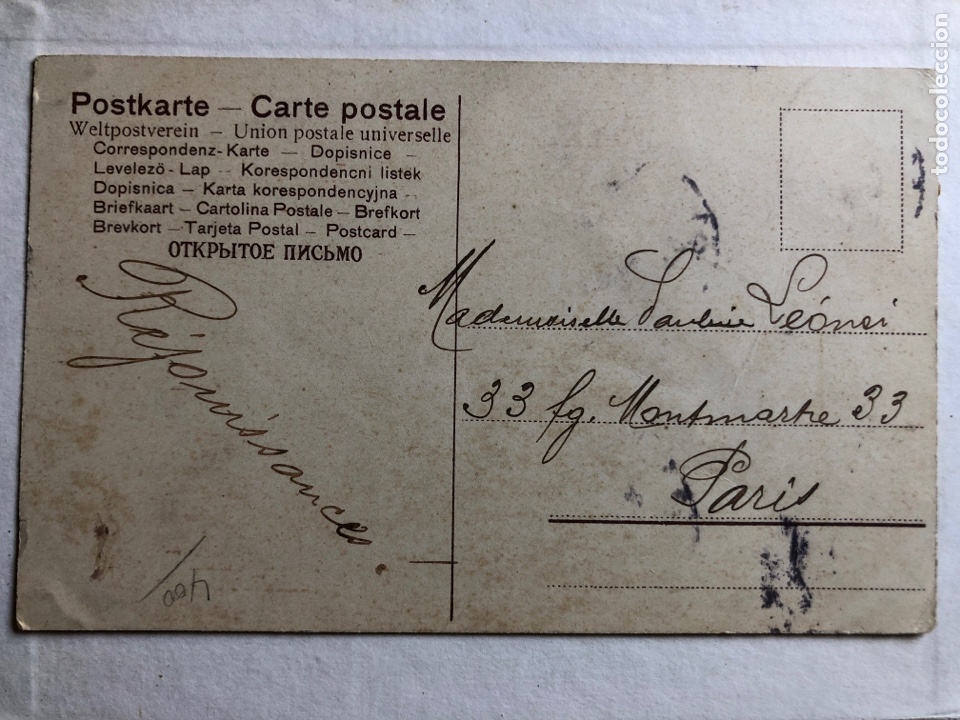 Postkarte — Carte postale
Weltpostverein – Union postale universelle
Correspondenz-Karte — Dopisnice –
Levelező-Lap – Korespondencni listek
Dopisnica – Karta korespondencyjna –
Briefkaart – Cartolina Postale – Brefkort
Brevkort – Tarjeta Postal – Postcard –
ОТКРЫТОЕ ПИСЬМО
Réjouissances.
Mademoiselle Pauline
33 fg. Montmartre 33
Paris
400
todocoleccion